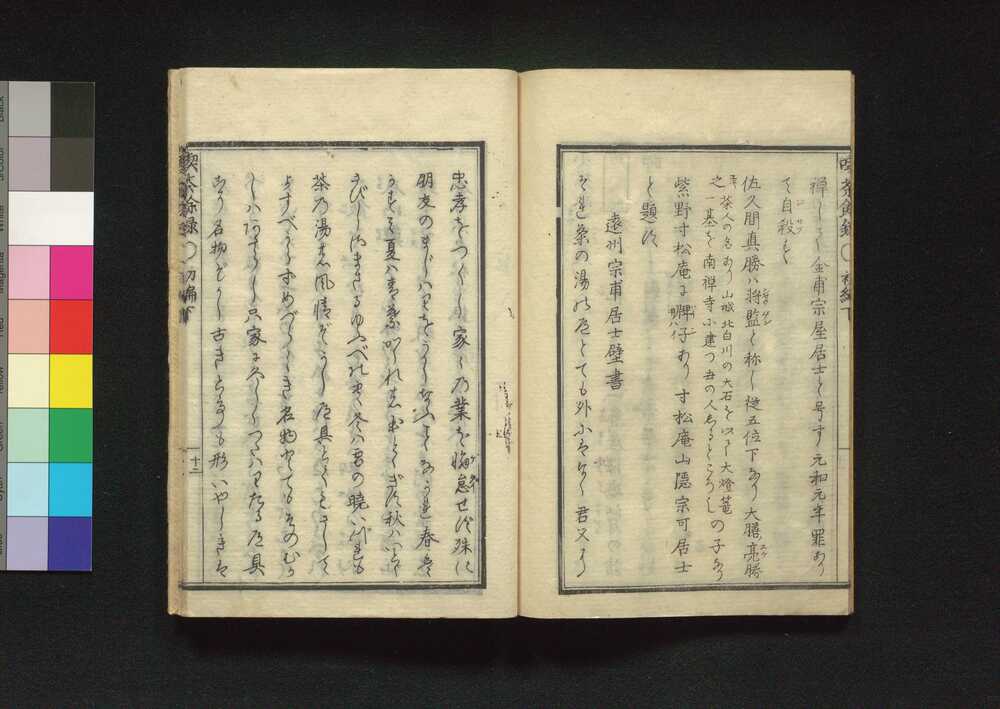 禅しく金甫宗屋居士と号す元和元年罪あり
て自殺す
佐久間真勝ハ将監と称し従五位下なり大膳亮勝
之 茶人の名あり山城北白川の大石を以て大燈篭
一基を南禅寺に建つ世の人しるところ の子なり
紫野寸松庵に 子あり寸松庵山隠宗可居士
と題す
遠州宗甫居士壁書
それ茶の湯の道とても外にはなく君父に
忠孝をつくし家々の業を懈怠せず殊に
朋友のまじハりをうしなふことなかれ春ハ
かすミ夏ハ青葉がくれのほとゝぎす秋ハいとゞ
さびしさまさるゆふべの空冬ハ雪の暁いづれも
茶の湯の風情ぞかし道具とてもさして
よすべからずめづらしき名物とてもそのむか
しハあたらし只家に久しくつたハりたる道具
こそ名物ぞかし古きとても形いやしきは
喫茶余録 初編下
十二